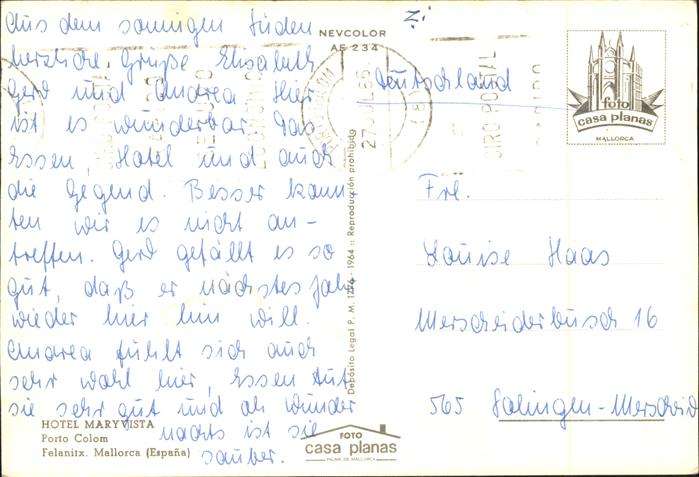 Aus dem sonnigen Süden
herzliche Grüße Elisabeth
Gerd und Andrea. Hier
ist es wunderbar. Das
Essen, Hotel und auch
die Gegend. Besser kann-
ten wir es nicht an-
treffen. Gerd gefällt es so
gut, daß er nächstes Jahr
wieder hier hin will.
Andrea fühlt sich auch
sehr wohl hier, Essen tut
sie sehr gut und oh wunder
nachts ist sie
sauber.
HOTEL MARYVISTA
Porto Colom
Felanitx. Mallorca (España)
NEVCOLOR
AE 234
Depósito Legal P. M. 1276 - 1964 :: Reproducción prohibida
FOTO
casa planas
PALMA DE MALLORCA
Deutschland
foto
casa planas
MALLORCA
GIRO POSTAL
Frl.
Louise Haas
Merscheiderbusch 16
565 Solingen-Merscheid